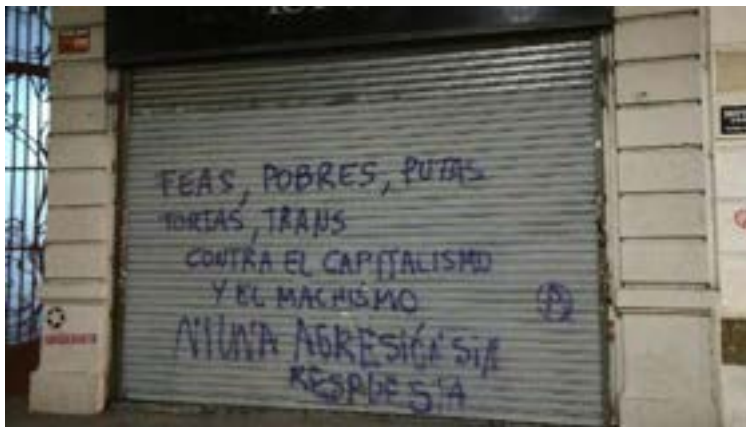 FEAS, POBRES, PUTAS
TORTAS, TRANS
CONTRA EL CAPITALISMO
Y EL MACHISMO
NI UNA AGRESIÓN SIN
RESPUESTA